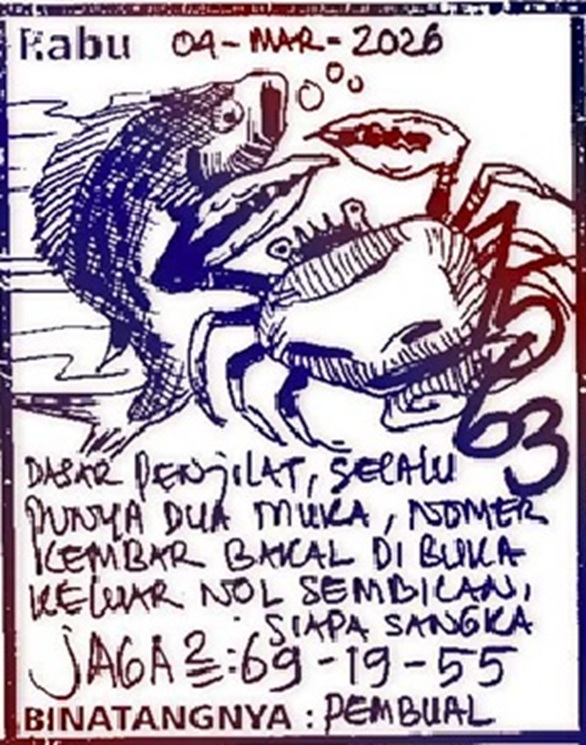 Rabu 04-MAR-2026
75
63
DASAR PENJILAT, SELALU
PUNYA DUA MUKA, NOMER
KEMBAR BAKAL DI BUKA
KELUAR NOL SEMBILAN,
SIAPA SANGKA
JAGA2:69-19-55
BINATANGNYA : PEMBUAL